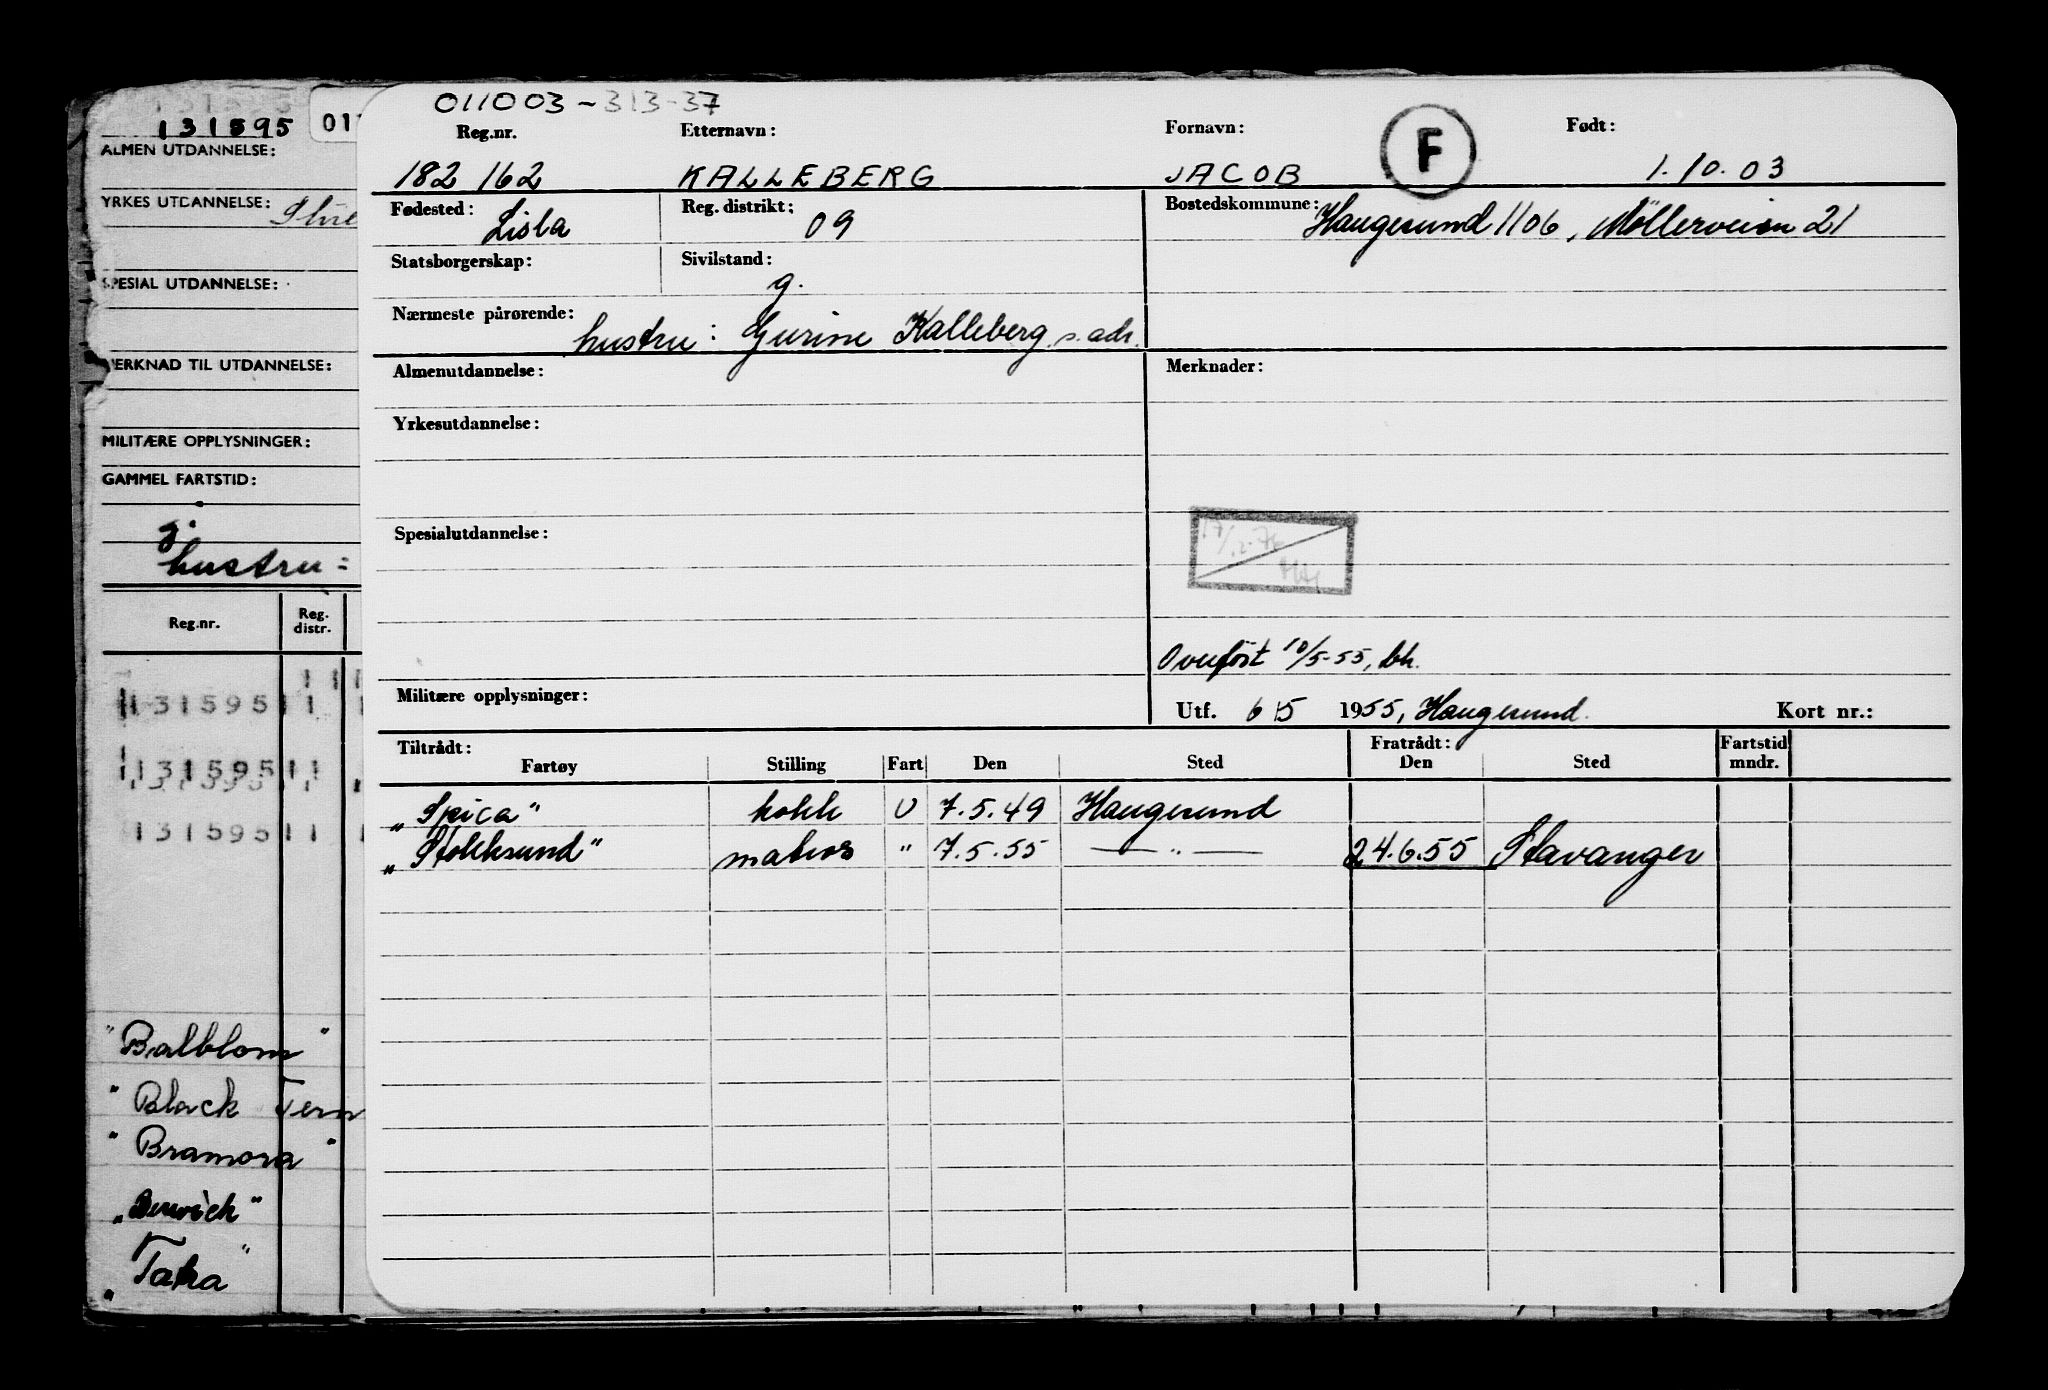 131595
011
ALMEN UTDANNELSE:
YRKES UTDANNELSE:
SPESIAL UTDANNELSE:
MERKNAD TIL UTDANNELSE:
MILITÆRE OPPLYSNINGER:
GAMMEL FARTSTID:
g.
hustru:
Reg.nr. Reg. distr.
131595 11
131595 11
131595 11
"Balblom"
"Black Tern
"Bramora"
"Berwick"
"Tatra"
011003-313-37
Reg.nr. Etternavn: Fornavn: F Født:
182 162 KALLEBERG JACOB 1.10.03
Fødested: Lisla Reg. distrikt: 09 Bostedskommune: Haugesund 1106, Møllerveien 21
Statsborgerskap: Sivilstand: g.
Nærmeste pårørende: hustru: Gurine Kalleberg s. adr.
Almenutdannelse: Merknader:
Yrkesutdannelse:
Spesialutdannelse:
Overført 10/5-55, bh.
Militære opplysninger: Utf. 6/5 1955, Haugesund. Kort nr.:
Tiltrådt: Fratrådt: Fartstid
Fartøy Stilling Fart Den Sted Den Sted mndr.
"Spica" kokk U 7.5.49 Haugesund
"Stokksund" matros " 7.5.55 — " — 24.6.55 Stavanger